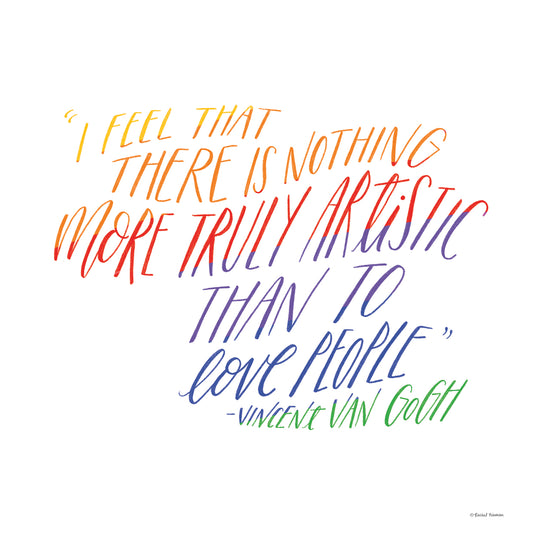 "I FEEL THAT
THERE IS NOTHING
MORE TRULY ARTiSTIC
THAN TO
love PEOPLE"
-VINCENt VAN GoGH
©